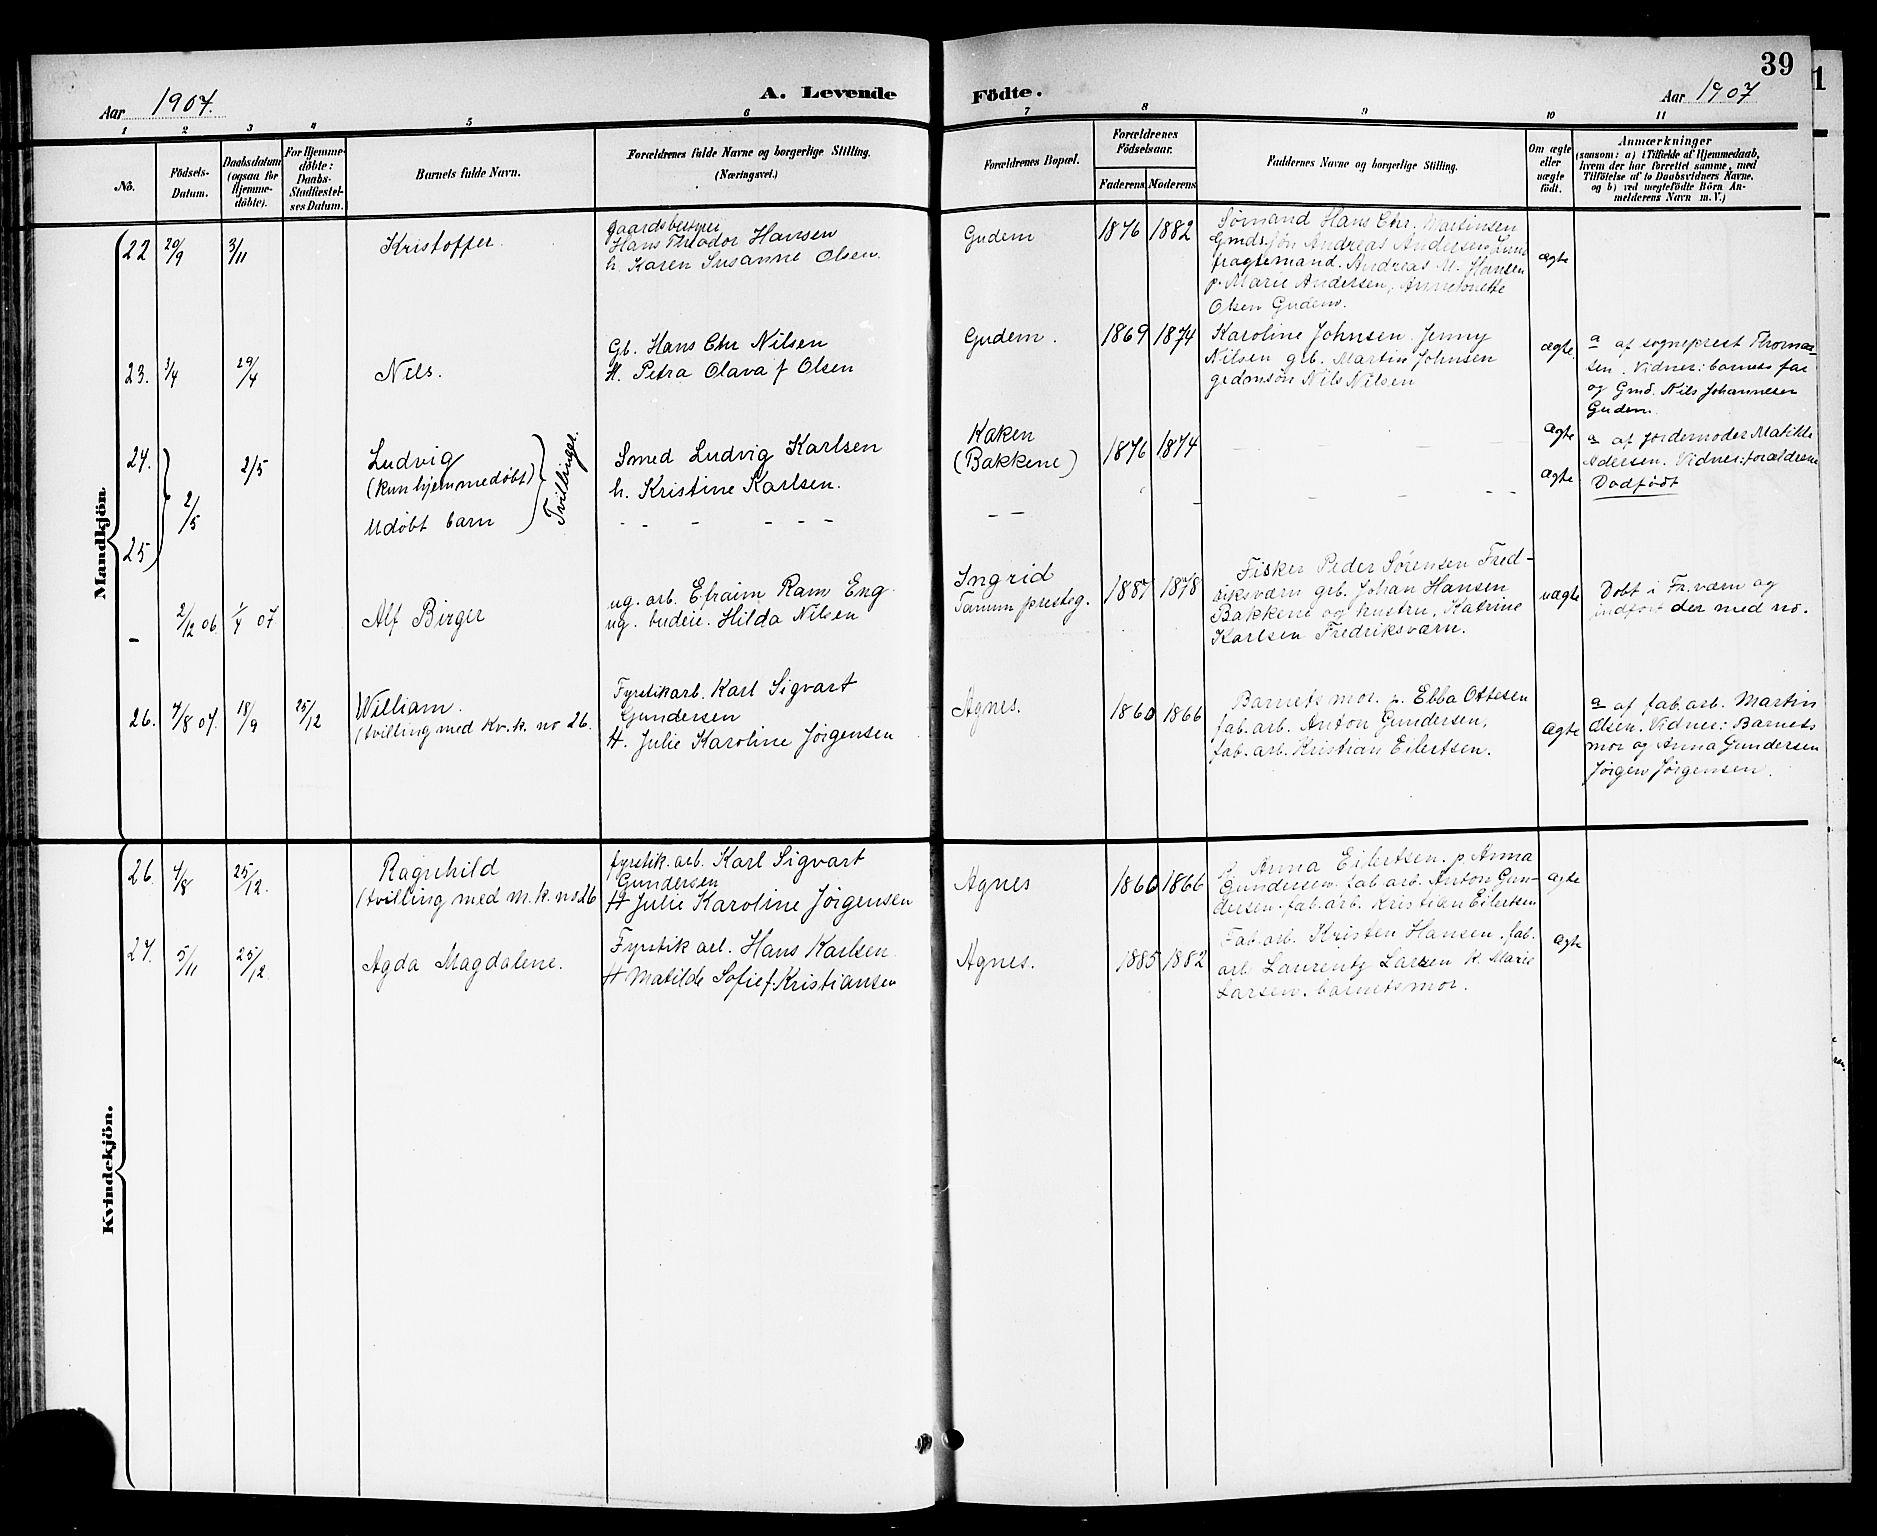 39
Aar 1907.
A. Levende
Födte.
Aar 1907
1 2 3 4 5 6 7 8 9 10 11
No.
Födsels-
Datum.
Daabsdatum
(ogsaa for
Hjemme-
döbte).
For Hjemme-
döbte:
Daabs-
Stadfæstel-
ses Datum.
Barnets fulde Navn.
Forældrenes fulde Navne og borgerlige Stilling.
(Næringsvei.)
Forældrenes Bopæl.
Forældrenes
Födselsaar.
Faderens
Moderens
Faddernes Navne og borgerlige Stilling.
Om ægte
eller
uægte
födt.
Anmærkninger
(saasom: a) i Tilfælde af Hjemmedaab,
hvem der har forrettet samme, med
Tilföielse af to Daabsvidners Navne,
og b) ved uægtefödte Börn An-
melderens Navn m. V.)
Mandkjön.
22 29/9 3/11
Kristoffer.
Gaardsbestyrer
Hans Theodor Hansen
h. Karen Susanne Olsen.
Gudem
1876 1882
Sømand Hans Chr. Martinsen
Gmds.søn Andreas Andersen Lund
fragtemand. Andreas M. Hansen
p. Marie Andersen, Annetonette
Olsen Gudem.
ægte
23. 3/4 29/4
Nils.
Gb. Hans Chr Nilsen
H. Petra Olava f Olsen
Gudem.
1869 1874
Karoline Johnsen. Jenny
Nilsen grb. Martin Johnsen
grdmsøn Nils Nilsen
ægte.
a af sogneprest Thomas-
sen. Vidner: barnets far
og Gmd. Nils Johannesen
Gudem.
24. 2/5 2/5
Ludvig
(kun hjemmedøbt)
Tvillinger.
Smed Ludvig Karlsen
h. Kristine Karlsen.
Kaken
(Bakkene)
1876 1874
ægte
a af jordemoder Matilde
Adersen. Vidner: forældrene
25
Udøbt barn
ægte
Dødfødt
– 2/12 06 1/4 07
Alf Birger
ug. arb. Efraim Ram Eng
ug. budeie. Hilda Nilsen
Ingrid
Tanum presteg.
1887 1878
Fisker Peder Sørensen Fred-
riksværn grb. Johan Hansen
Bakkene og hustru, Katrine
Karlsen Fredriksværn.
uægte
Døbt i Fr.værn og
indført der med no.
26. 7/8 07. 18/9 25/12
William.
(tvilling med Kv.k. no 26.
Fyrstikarb. Karl Sigvart
Gundersen
H. Julie Karoline Jørgensen
Agnes.
1860 1866
Barnets mor. p. Ebba Ottesen
fab. arb. Anton Gundersen,
fab. arb. Kristian Eilertsen.
ægte
a af fab. arb. Martin
Olsen. Vidner: Barnets
mor og Anna Gundersen
Jørgen Jørgensen.
Kvindekjön.
26. 4/8 25/12.
Ragnhild
(tvilling med m.k. no 26
fyrstik. arb. Karl Sigvart
Gundersen
H Julie Karoline Jørgensen
Agnes
1860 1866
p. Anna Eilertsen. p. Anna
Gundersen. fab. arb. Anton Gun-
dersen. fab. arb. Kristian Eilertsen
ægte
27. 5/11 25/12.
Agda Magdalene.
Fyrstik arb. Hans Karlsen
H Matilde Sofie f. Kristiansen
Agnes.
1885 1882
Fab. arb. Kristen Hansen, fab.
arb Laurentz Larsen k. Marie
Larsen. barnets mor.
ægte